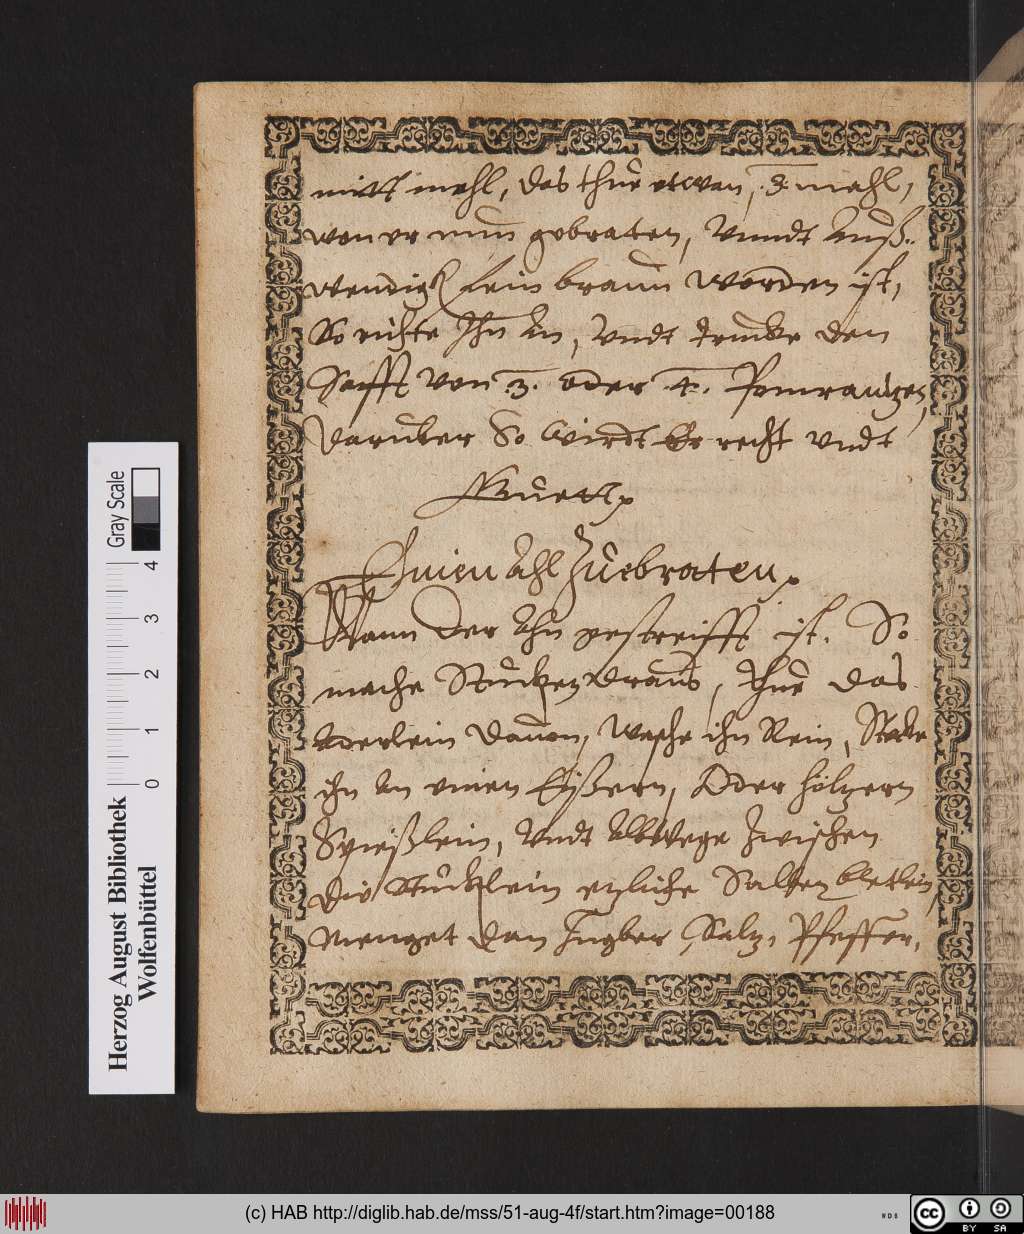 mitt mehl, das thue etwan, 3. mahl,
wen er nun gebraten, Vnndt Auß-
wendigk fein braun worden ist,
So richte Ihn An, Vndt drucke den
Safft von 3. oder 4. Pomrantzen,
Daruber So wirdt Er recht vndt
Guett.
Einen Ahl Zue braten.
Wann der Ahn gestreifft ist. So
mache Stucken draus, Thue das
Aderlein dauon, wasche ihn Rein, Stecke
ihn An einen Eyßern, Oder höltzern
Spießlein, Vndt Allwege zwischen
die Stucklein etzliche Salbey bletlein,
Menget dan Ingber, Saltz, Pfeffer,
Herzog August Bibliothek
Wolfenbüttel
Gray Scale
0 1 2 3 4
(c) HAB http://diglib.hab.de/mss/51-aug-4f/start.htm?image=00188
WDB
cc BY SA